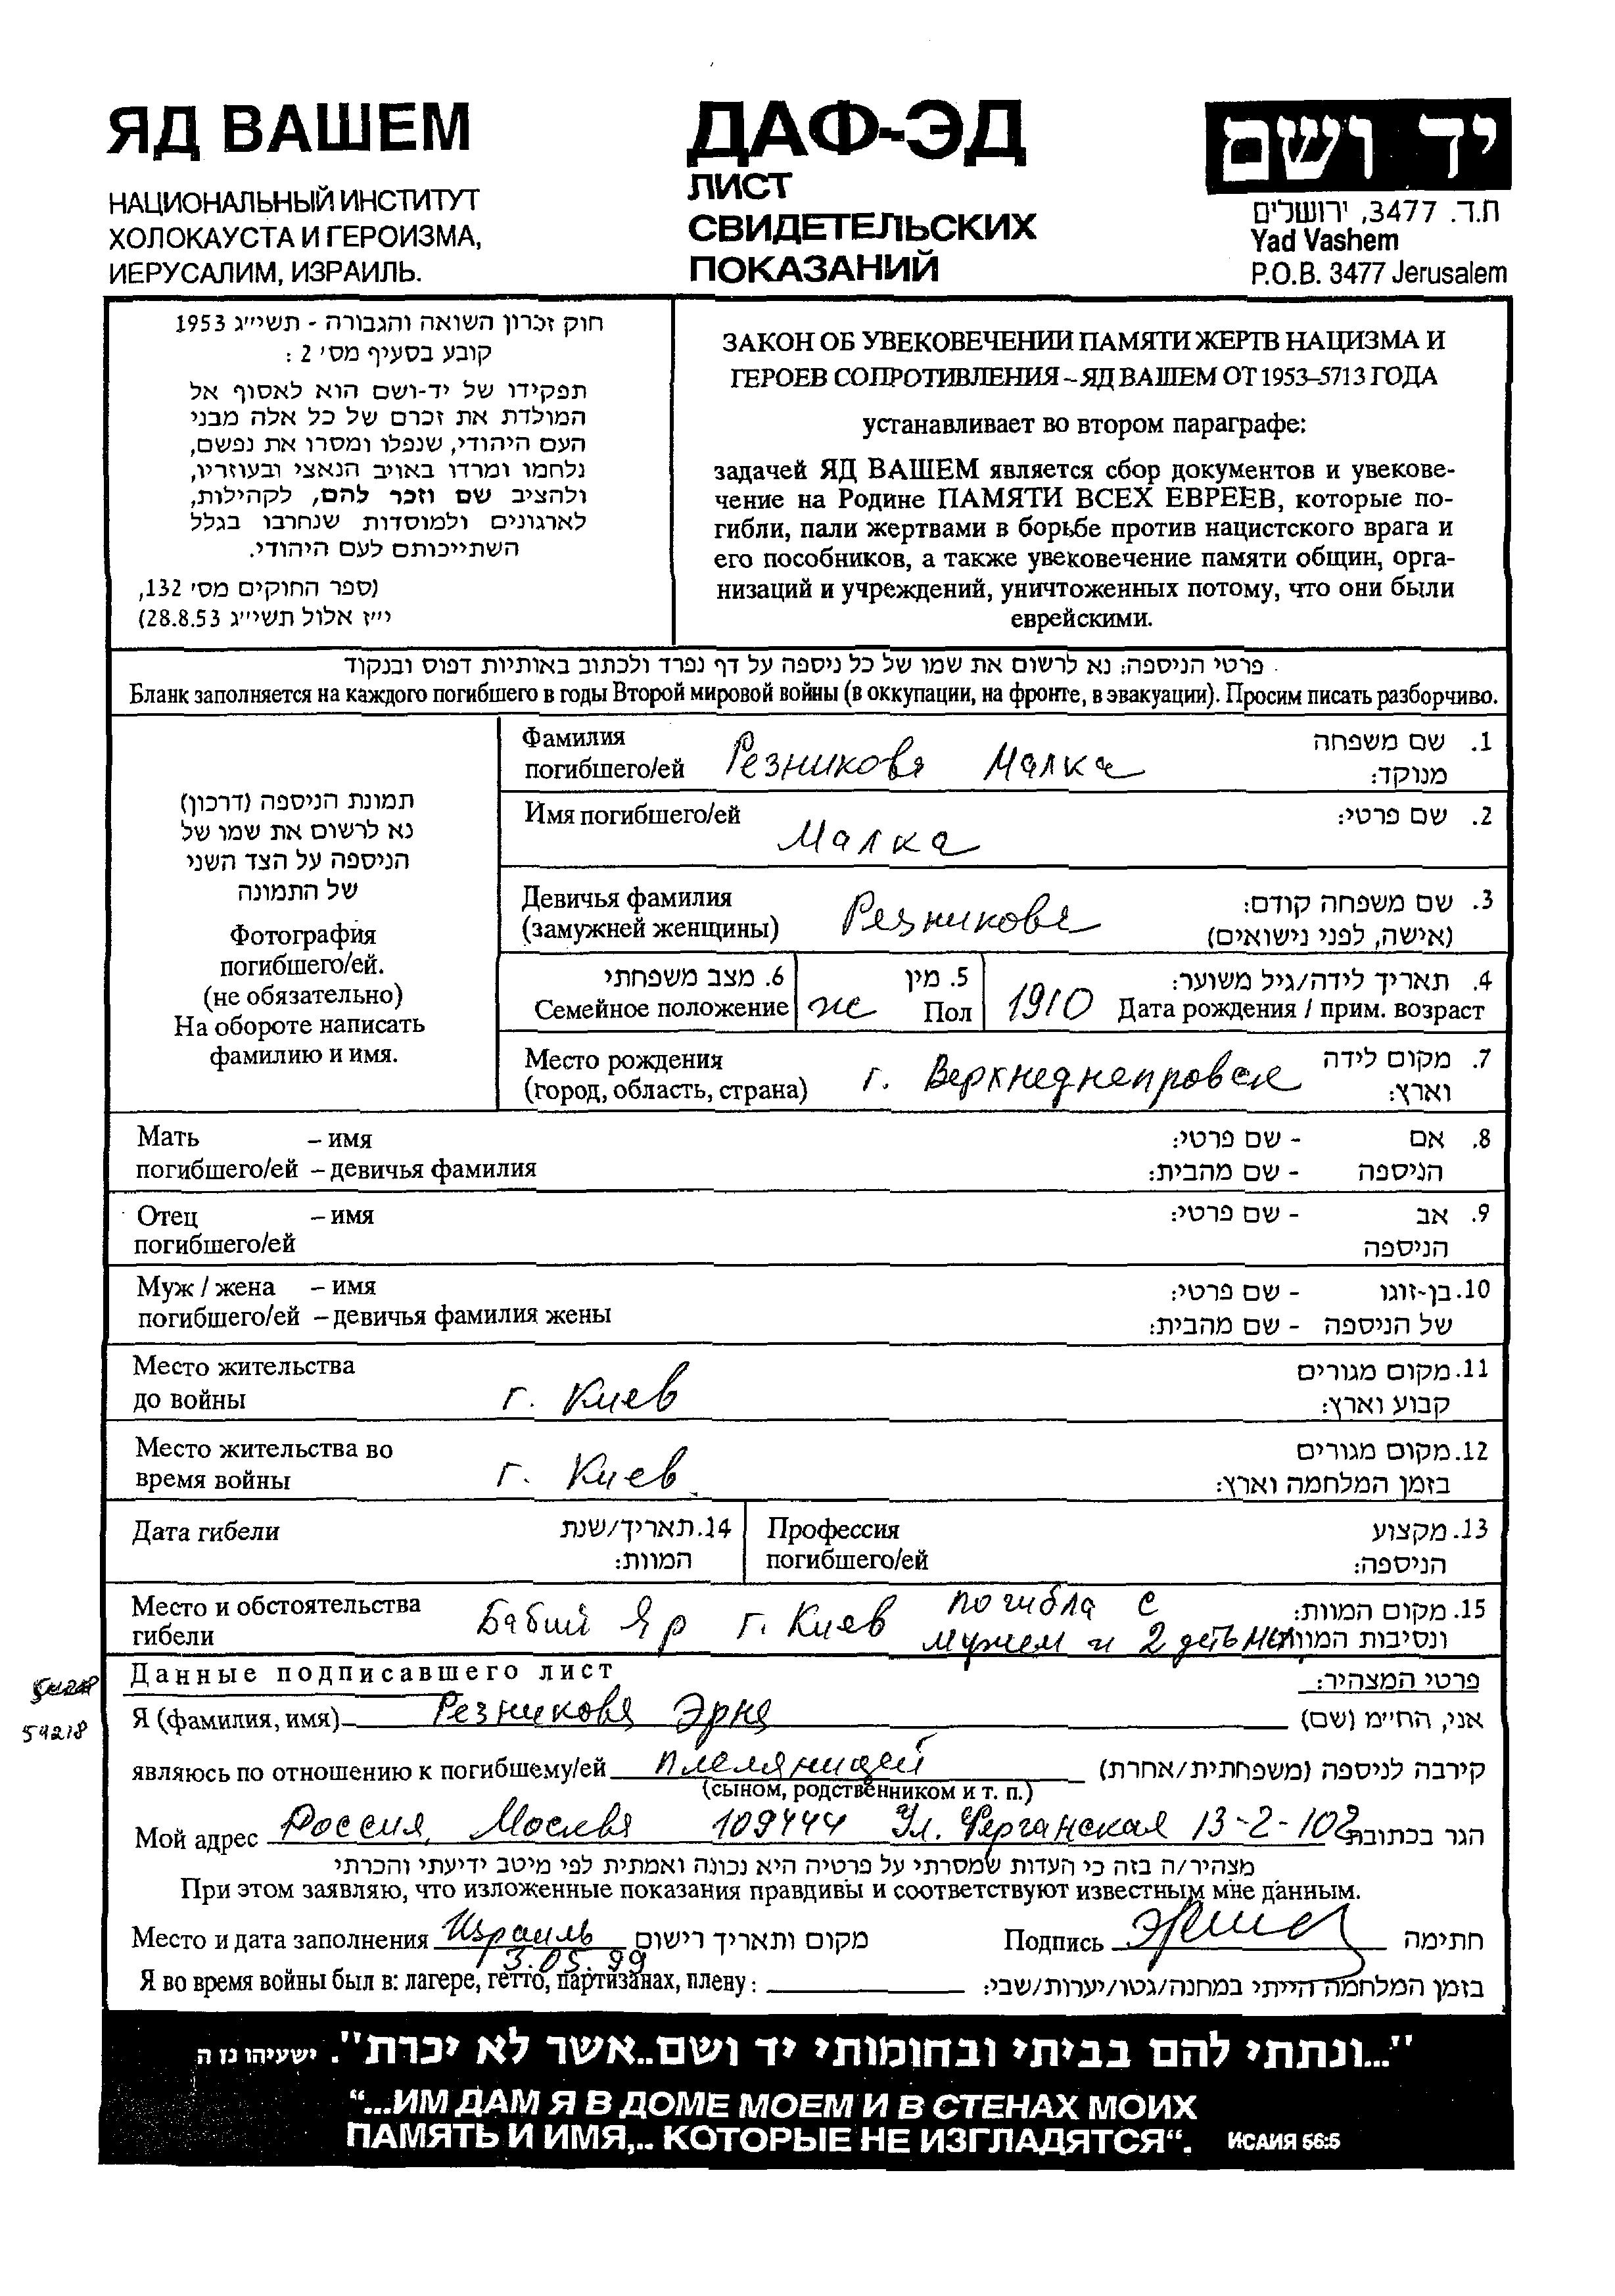 ЯД ВАШЕМ
НАЦИОНАЛЬНЫЙ ИНСТИТУТ
ХОЛОКАУСТА И ГЕРОИЗМА,
ИЕРУСАЛИМ, ИЗРАИЛЬ.
ДАФ-ЭД
ЛИСТ
СВИДЕТЕЛЬСКИХ
ПОКАЗАНИЙ
יד ושם
ת.ד. 3477, ירושלים
Yad Vashem
P.O.B. 3477 Jerusalem
חוק זכרון השואה והגבורה - תשי״ג 1953
קובע בסעיף מס׳ 2 :
תפקידו של יד-ושם הוא לאסוף אל
המולדת את זכרם של כל אלה מבני
העם היהודי, שנפלו ומסרו את נפשם,
נלחמו ומרדו באויב הנאצי ובעוזריו,
ולהציב שם וזכר להם, לקהילות,
לארגונים ולמוסדות שנחרבו בגלל
השתייכותם לעם היהודי.
(ספר החוקים מס׳ 132,
י״ז אלול תשי״ג 28.8.53)
ЗАКОН ОБ УВЕКОВЕЧЕНИИ ПАМЯТИ ЖЕРТВ НАЦИЗМА И
ГЕРОЕВ СОПРОТИВЛЕНИЯ – ЯД ВАШЕМ ОТ 1953–5713 ГОДА
устанавливает во втором параграфе:
задачей ЯД ВАШЕМ является сбор документов и увекове-
чение на Родине ПАМЯТИ ВСЕХ ЕВРЕЕВ, которые по-
гибли, пали жертвами в борьбе против нацистского врага и
его пособников, а также увековечение памяти общин, орга-
низаций и учреждений, уничтоженных потому, что они были
еврейскими.
פרטי הניספה: נא לרשום את שמו של כל ניספה על דף נפרד ולכתוב באותיות דפוס ובנקוד
Бланк заполняется на каждого погибшего в годы Второй мировой войны (в оккупации, на фронте, в эвакуации). Просим писать разборчиво.
תמונת הניספה (דרכון)
נא לרשום את שמו של
הניספה על הצד השני
של התמונה
Фотография
погибшего/ей.
(не обязательно)
На обороте написать
фамилию и имя.
Фамилия 1. שם משפחה
погибшего/ей Резникова Малка מנוקד:
Имя погибшего/ей 2. שם פרטי:
Малка
Девичья фамилия 3. שם משפחה קודם:
(замужней женщины) Резникова (אישה, לפני נישואים)
6. מצב משפחתי 5. מין 4. תאריך לידה/גיל משוער:
Семейное положение ж Пол 1910 Дата рождения / прим. возраст
Место рождения 7. מקום לידה
(город, область, страна) г. Верхнеднепровск וארץ:
Мать – имя 8. אם - שם פרטי:
погибшего/ей – девичья фамилия הניספה - שם מהבית:
Отец – имя 9. אב - שם פרטי:
погибшего/ей הניספה
Муж / жена – имя 10. בן-זוגו - שם פרטי:
погибшего/ей – девичья фамилия жены של הניספה - שם מהבית:
Место жительства 11. מקום מגורים
до войны г. Киев קבוע וארץ:
Место жительства во 12. מקום מגורים
время войны г. Киев בזמן המלחמה וארץ:
Дата гибели 14. תאריך/שנת Профессия 13. מקצוע
המוות: погибшего/ей הניספה:
Место и обстоятельства погибла с 15. מקום המוות:
гибели Бабий Яр г. Киев мужем и 2 детьми ונסיבות המוות
Данные подписавшего лист פרטי המצהיר:
54218
Я (фамилия, имя) Резникова Эрна אני, החי״מ (שם)
являюсь по отношению к погибшему/ей племяницей קירבה לניספה (משפחתית/אחרת)
(сыном, родственником и т. п.)
Мой адрес Россия, Москва 109444 Ул. Ферганская 13-2-102 הגר בכתובת
מצהיר/ה בזה כי העדות שמסרתי על פרטיה היא נכונה ואמתית לפי מיטב ידיעתי והכרתי
При этом заявляю, что изложенные показания правдивы и соответствуют известным мне данным.
Место и дата заполнения Израиль מקום ותאריך רישום Подпись חתימה
3.05.99
Я во время войны был в: лагере, гетто, партизанах, плену: בזמן המלחמה הייתי במחנה/גטו/יערות/שבי:
"...ונתתי להם בביתי ובחומותי יד ושם..אשר לא יכרת". ישעיהו נז ה
“...ИМ ДАМ Я В ДОМЕ МОЕМ И В СТЕНАХ МОИХ
ПАМЯТЬ И ИМЯ,.. КОТОРЫЕ НЕ ИЗГЛАДЯТСЯ“. ИСАИЯ 56:5